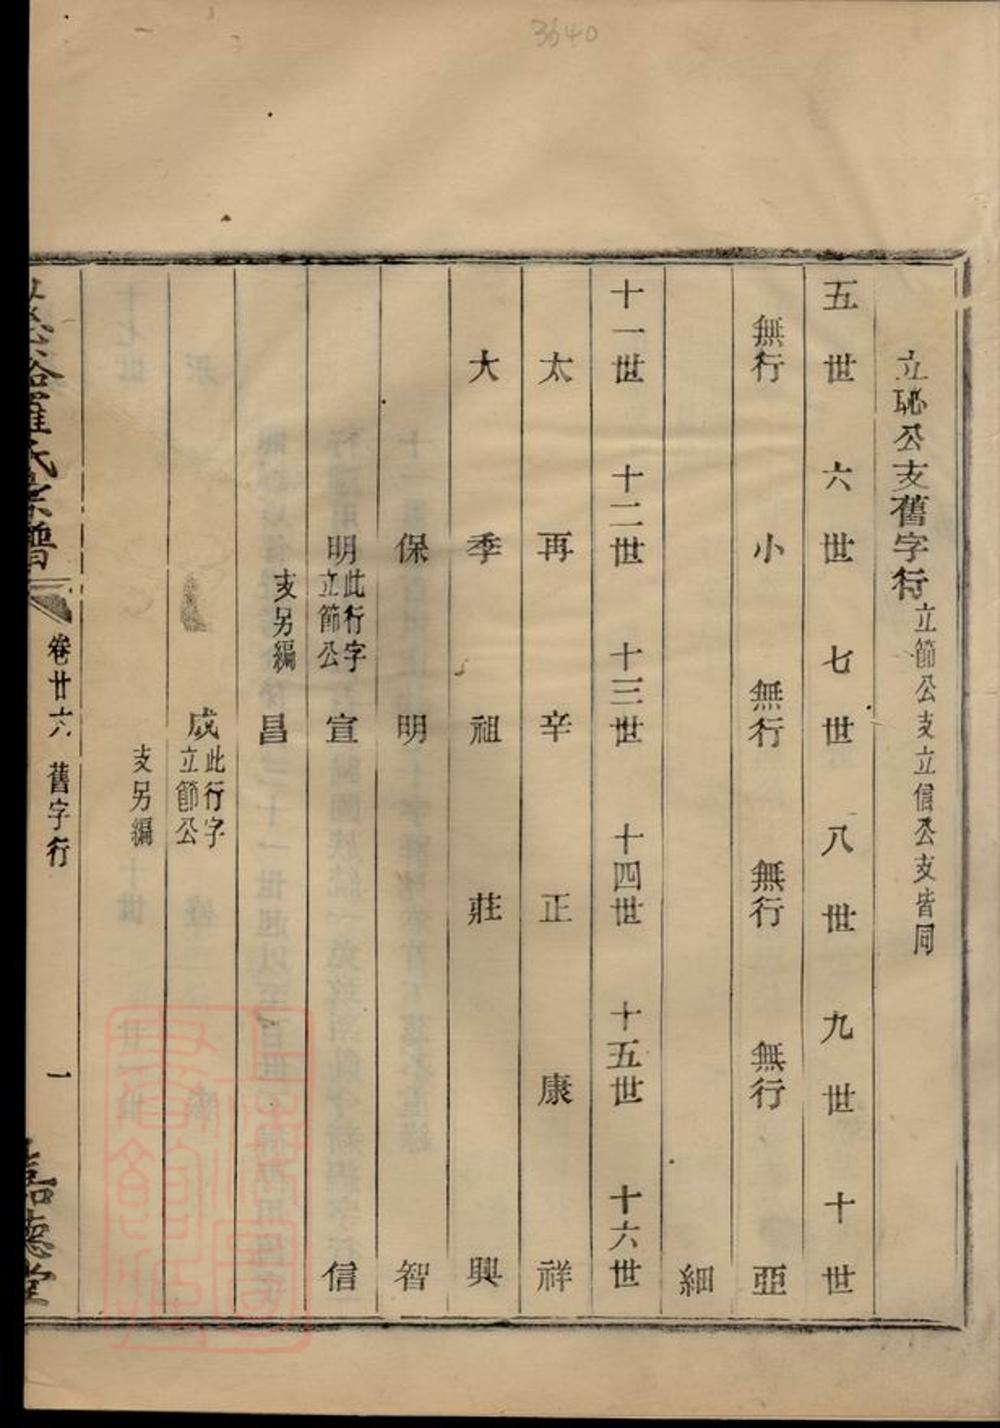 3640
立恥公支舊字行立節公支立信公支皆同
五世 六世 七世 八世 九世 十世
無行 小 無行 無行 無行 亞
細
十一世 十二世 十三世 十四世 十五世 十六世
太 再 辛 正 康 祥
大 季 祖 莊 興
保 明 智
明此行字立節公 宣 信
支另編 昌
成此行字立節公
支另編
羅氏宗譜 卷廿六 舊字行 一 嘉德堂